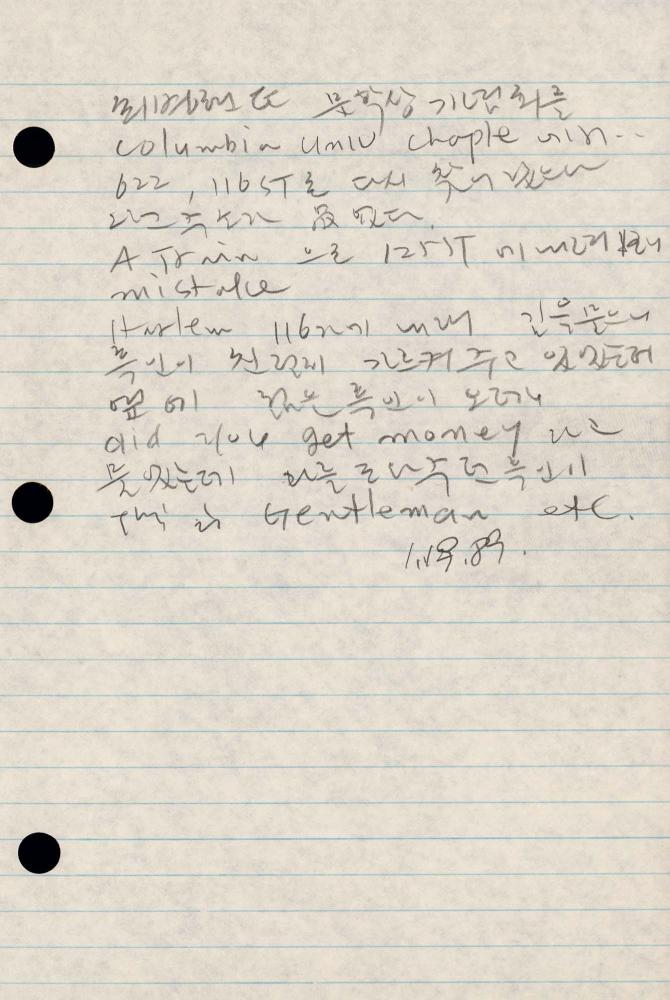 또 문학상 기념회를
columbia univ chaple 에서...
622, 116ST를 다시 찾아
라고
A Train 으로 125ST 에 내려
mistake
Harlem 116가에 내려 길을 물으니
흑인이 친절히 가르켜 주고 있었는데
옆에 젊은 흑인이 오더니
did you get money 라고
묻었는데 흑인이
Gentleman etc.
1.19.89.